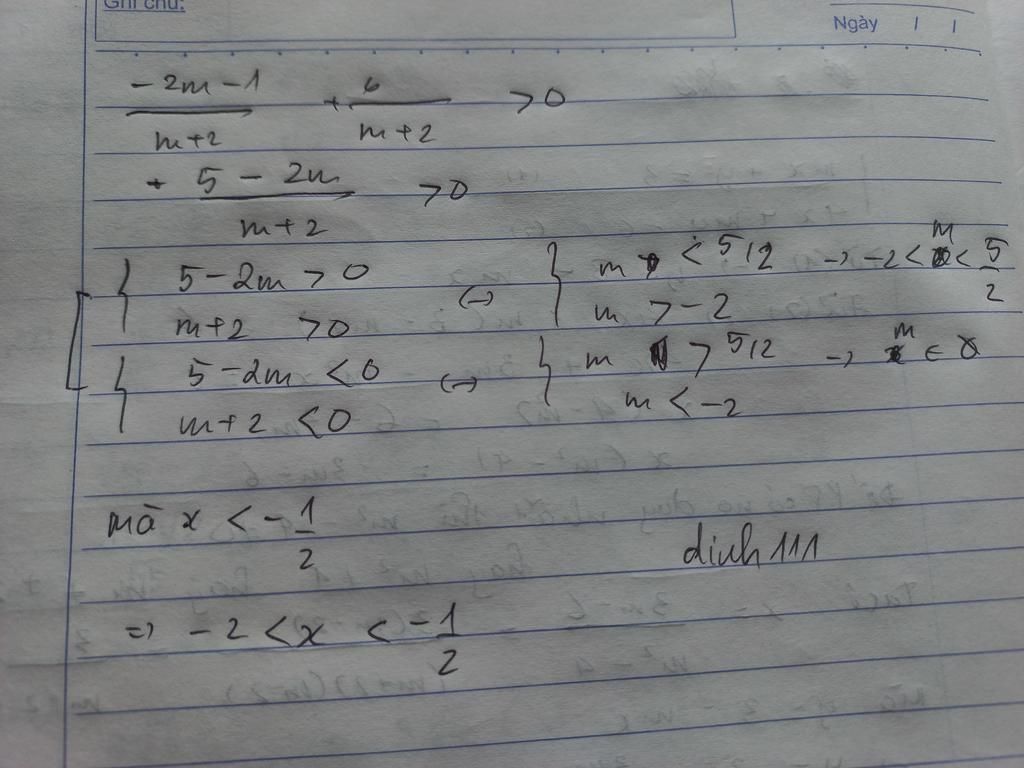 Ghi chú:
Ngày / /
-2m-1/m+2 + 6/m+2 >0
+ 5-2m/m+2 >0
5-2m >0 (→) m < 5/2 → -2< m < 5/2
m+2 >0 m >-2
5-2m <0 (→) m > 5/2 → m ∈ ∅
m+2 <0 m <-2
mà x < -1/2
dinh111
=> -2 <x < -1/2